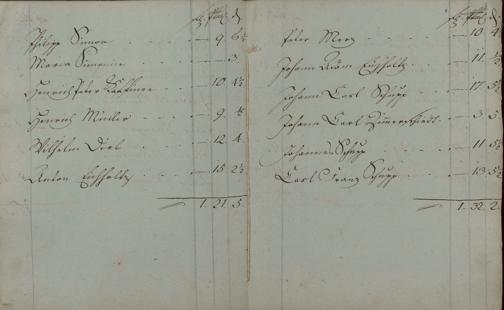 Philipp Simon - 9 6½
Maria Simonin - 3
Henrich Peter Kauffmann - 10 4½
Henrich Müller - 9 ½
Wilhelm Diel - 12 4
Anton Eichholtz - 15 2½
1. 21. 5.
Peter Merz - 10 4
Johann Adam Eichholtz - 11
Johann Carl Schupp - 17 5½
Johann Carl 3 5
Johannes Schupp - 11 5½
Carl Franz Schupp - 13 5½
1. 32. 2.